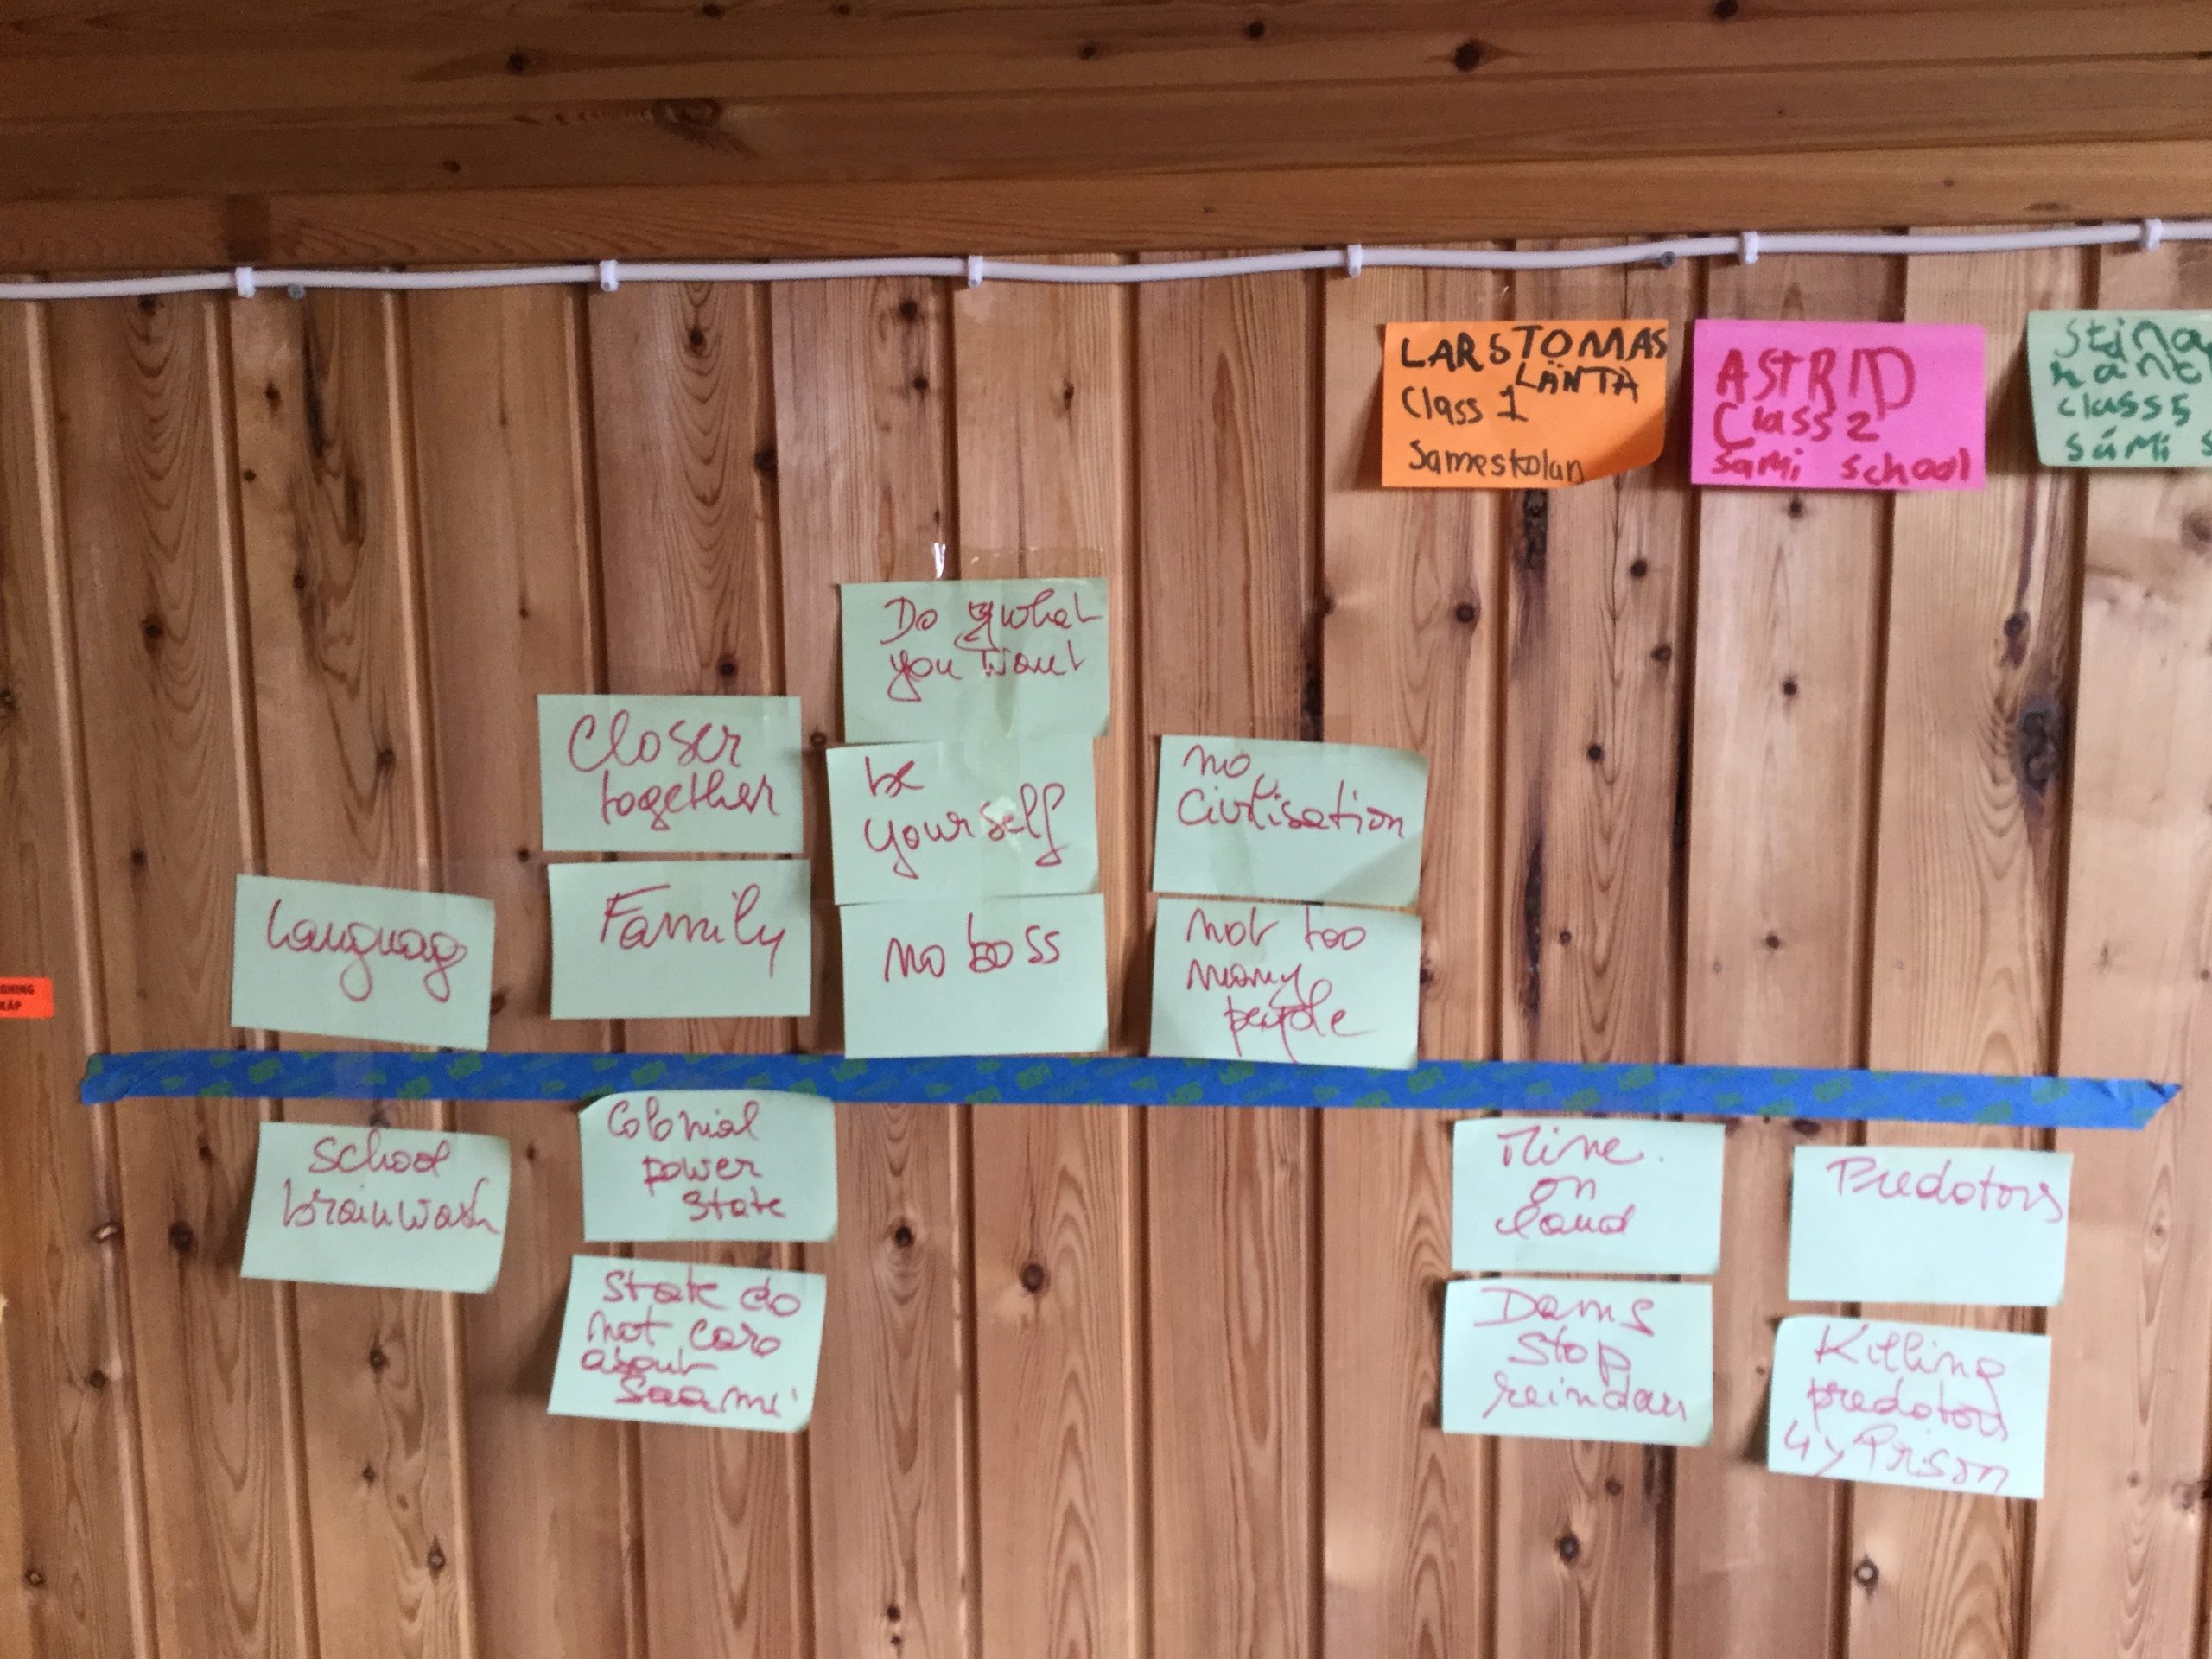 LARS TOMAS
LÄNTA
Class 1
Sameskolan
ASTRID
Class 2
Sami school
Stina
class 5
sámi s
Do what
you want
Closer
together
be
yourself
no
Civilisation
Languag
Family
no boss
not too
many
people
School
brainwash
Colonial
power
State
State do
not care
about
Saami
Mine
on
land
Dams
Stop
reinder
Predotors
Killing
predotors
4 y Prison